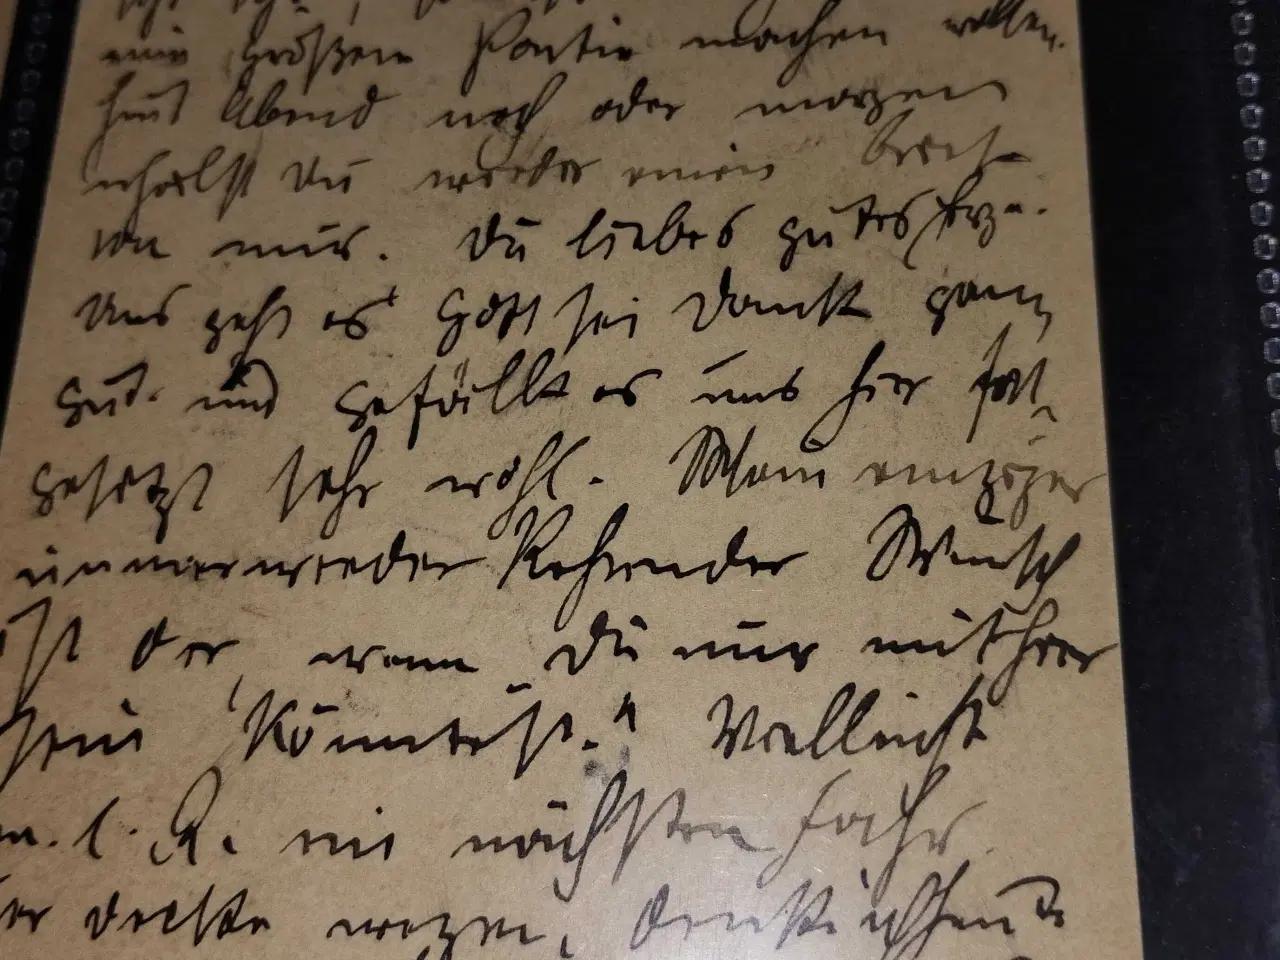 eine größere Partie machen wollen.
heut Abend noch oder morgen
erhälst Du wieder einen Brief
von mir. Du liebes gutes
Uns geht es Gott sei Dank ganz
gut und gefällt es uns hier fort-
gesetzt sehr wohl. Mein einziger
immerwiederkehrender Wunsch
ist der, wenn Du nur mit hier
sein könntest." Vielleicht
m. l. K. im nächsten Jahr